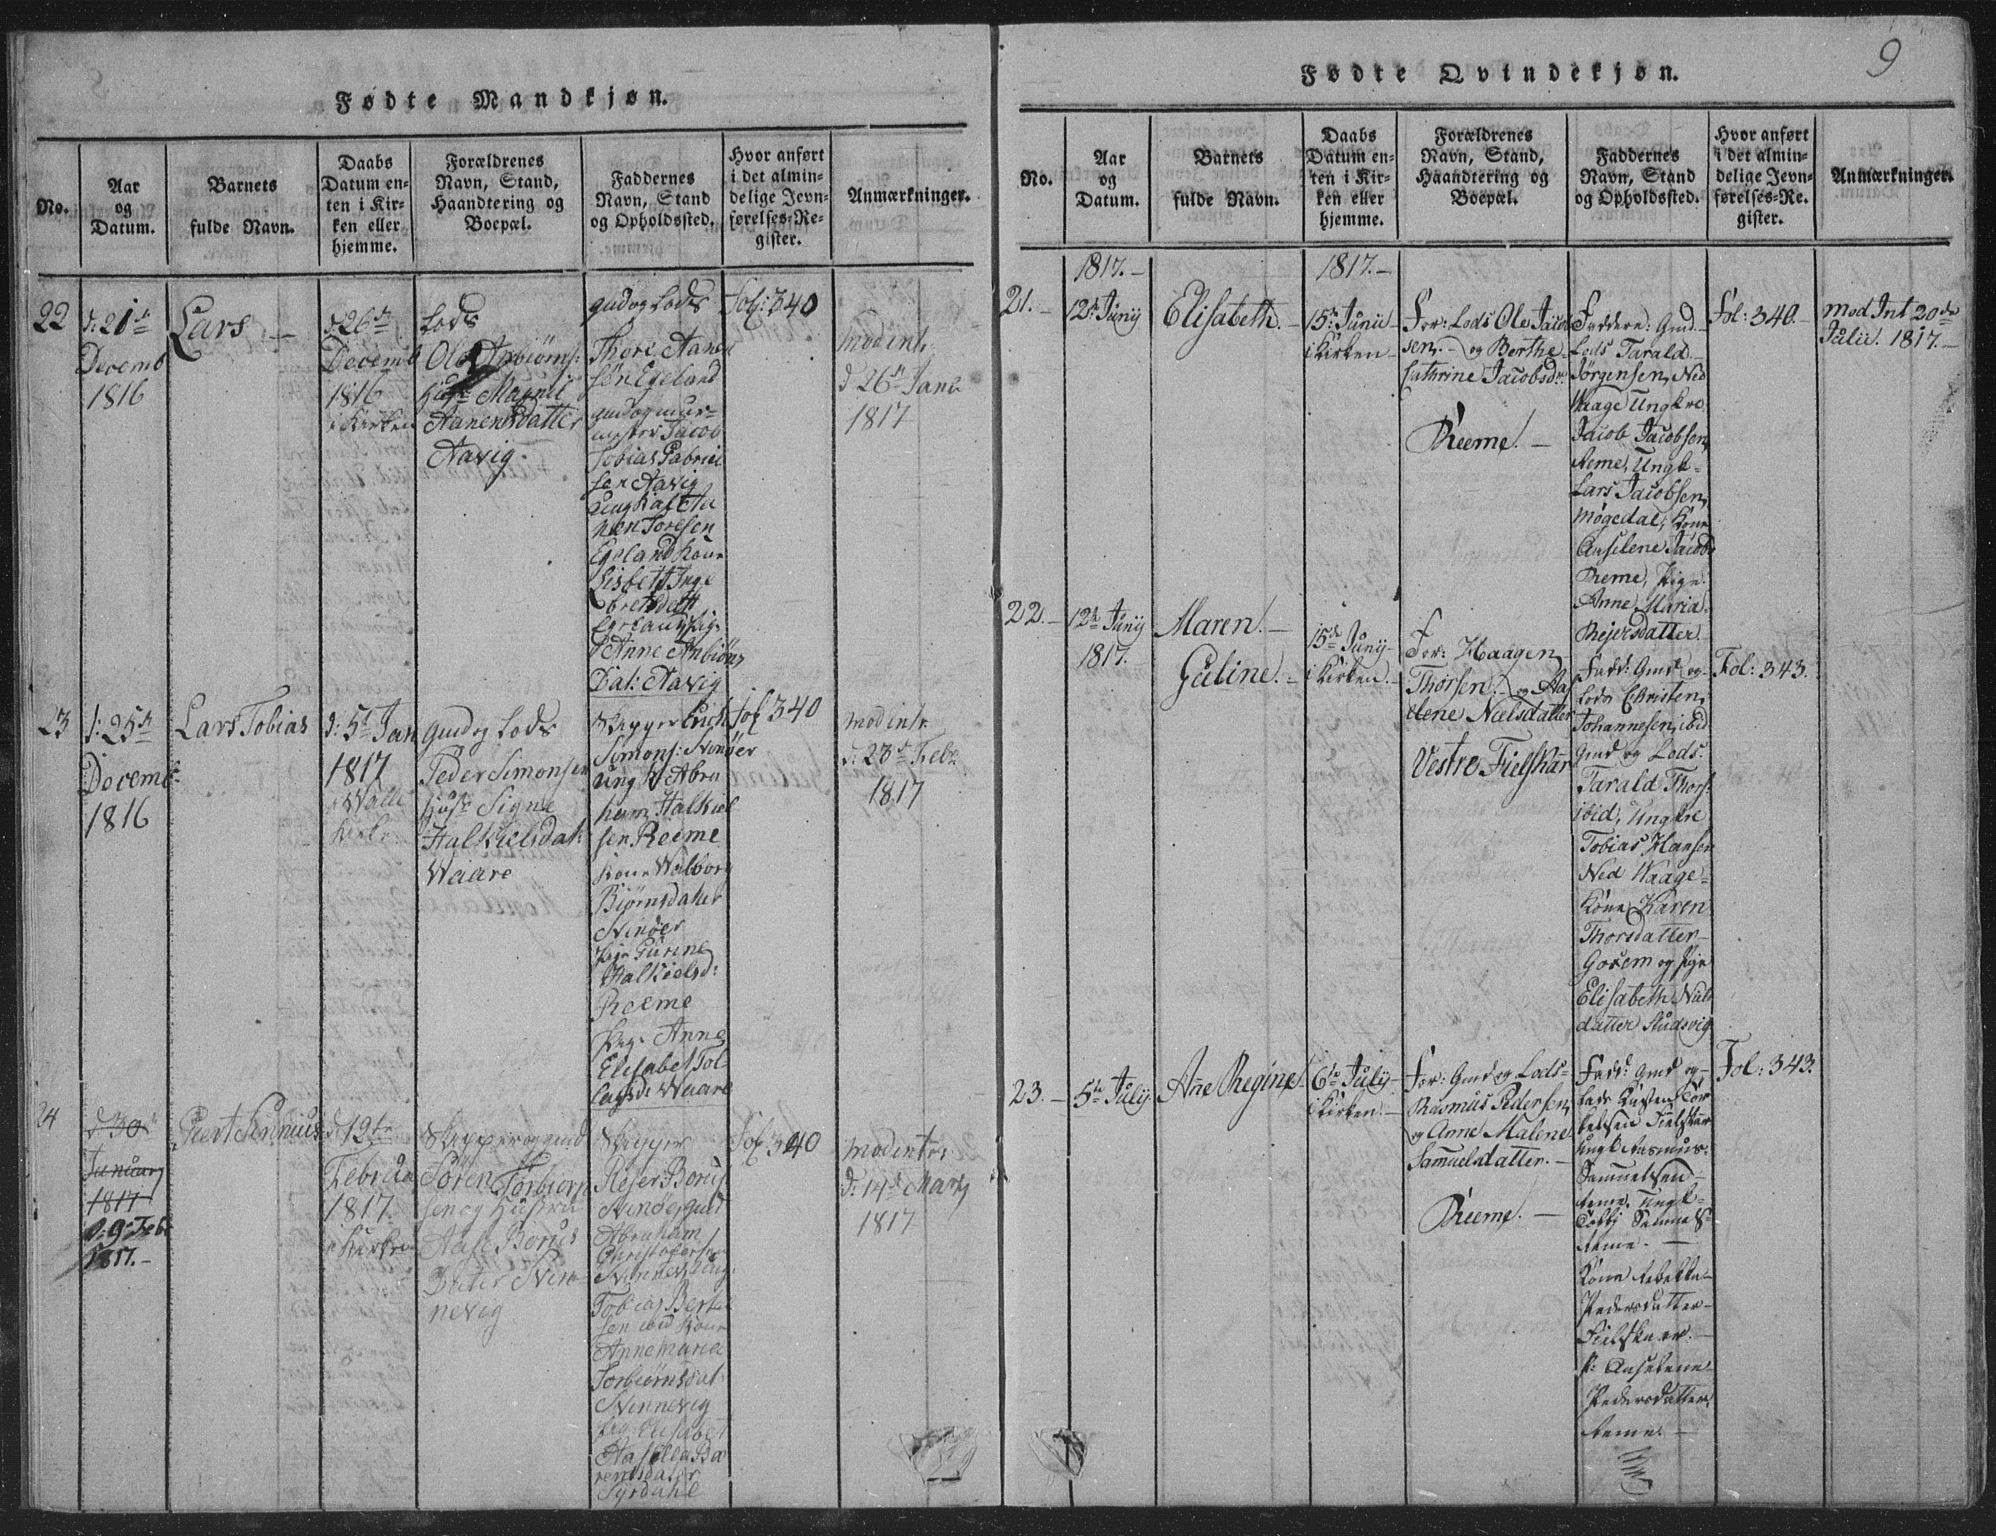 Fødte Mandkjøn.
No.
Aar
og
Datum.
Barnets
fulde Navn.
Daabs
Datum en-
ten i Kir-
ken eller
hjemme.
Forældrenes
Navn, Stand,
Haandtering og
Boepæl.
Faddernes
Navn, Stand
og Opholdssted.
Hvor anført
i det almin-
delige Jevn-
førelses-Re-
gister.
Anmærkninger.
22
d: 21de
Decemb
1816
Lars
d 26de
Decemb
1816
i Kirken
Lods
Ole Anbiørns:
Magnil
Aanensdatter
Aavig
Lods
Thore Aanen
søn Egeland
Jacob
Tobias Gabriel
sen Aavig
nen Toresen
Egeland Kone
Lisbett Inge
bretsdatt
Anne Anbiørns
Dat: Aavig
Fol: 340
mod intr
d 26de Janv
1817
23
d: 25de
Decemb
1816
Lars Tobias
d: 5t Jan
1817
i Walle
Kirke
gmd og Lods
Peder Simonsen
Hust Signe
Halkielsdat:
Waare
Skipper Erich
Simons: Svinøer
Ung K Abra
ham Halkiel
sen Reeme
Kone Walborg
Biørnsdatter
Svinøer
Pige Gurine
Halkielsd:
Reeme
Pige Anne
Elisabet Tol
lagsd: Waare
Fol 340
mod intr
d: 23de Febr
1817
24
d 30
Januarj
1817
d. 9de Feb
1817.
Giert Severinius
d 12te
Februar
1817
i Kirken
Skipper og gmd
Søren Torbiørn
sen og Hustru
Aase Borus
Dater Svin
nevig
Skipper
Rejer Borus
Svinøer gmd
Abraham
Christofersen
Svinnevig Ung
Tobias Bert
sen ibid Kone
Anne Maria
Torbiørnsdat
Svinnevig
Pig: Elisabet
rentsdatter
Syrdahl
Fol 340
mod intr:
d: 14de Marty
1817
9
Fødte Qvindekjøn.
No.
Aar
og
Datum.
Barnets
fulde Navn.
Daabs
Datum en-
ten i Kir-
ken eller
hjemme.
Forældrenes
Navn, Stand,
Haandtering og
Boepæl.
Faddernes
Navn, Stand
og Opholdssted.
Hvor anført
i det almin-
delige Jevn-
førelses-Re-
gister.
Anmærkninger.
21.
1817.
12de Junij
Elisabeth.
1817.
15de Junii
i Kirken
For: Lods Ole Jacob
sen. og Berthe
Cathrine Jacobsdr.
Reeme.
Faddere: Gmd.
Lods Tarald
Jørgensen, Ned
Waage Ungkre
Jacob Jacobsen,
Reme, Ungk.
Lars Jacobsen,
Møgedal, Kone
Anselene Jacobs
Reme, Pige
Anne Maria
Rejersdatter
Fol: 340.
mod Int 20de
Julii. 1817.
22.
12de Junij
1817.
Maren
Guline.
15de Junij
i Kirken.
For: Haagen
Thorsen. og Aas
elene Nielsdatter
Vestre Fielskar
Fadd: Gmd og
Lods Christen
Johannesen, ibid
Gmd og Lods.
Tarald Thors
ibid, Ungkre
Tobias Hansen
Ned Waage
Kone Karen
Thorsdatter
Gosem og Pige
Elisabeth Niels
datter Studsvig
Fol: 343.
23.
5te Julij
Ane Regine.
6te Julij
i Kirken.
For: Gmd og Lods
Rasmus Pedersen,
og Anne Malene
Samuelsdatter.
Reeme.
Fadd: Gmd og
Lods Kristen Tor
kelsen Fielskar
Ungk Rasmus
Samuelsen
Reme, Ungk.
Tobbi Samuels
Reme.
Kone Rebekka
Pedersdatter
Fielskaar.
P: Anselene
Pedersdatter
Reme.
Fol: 343.